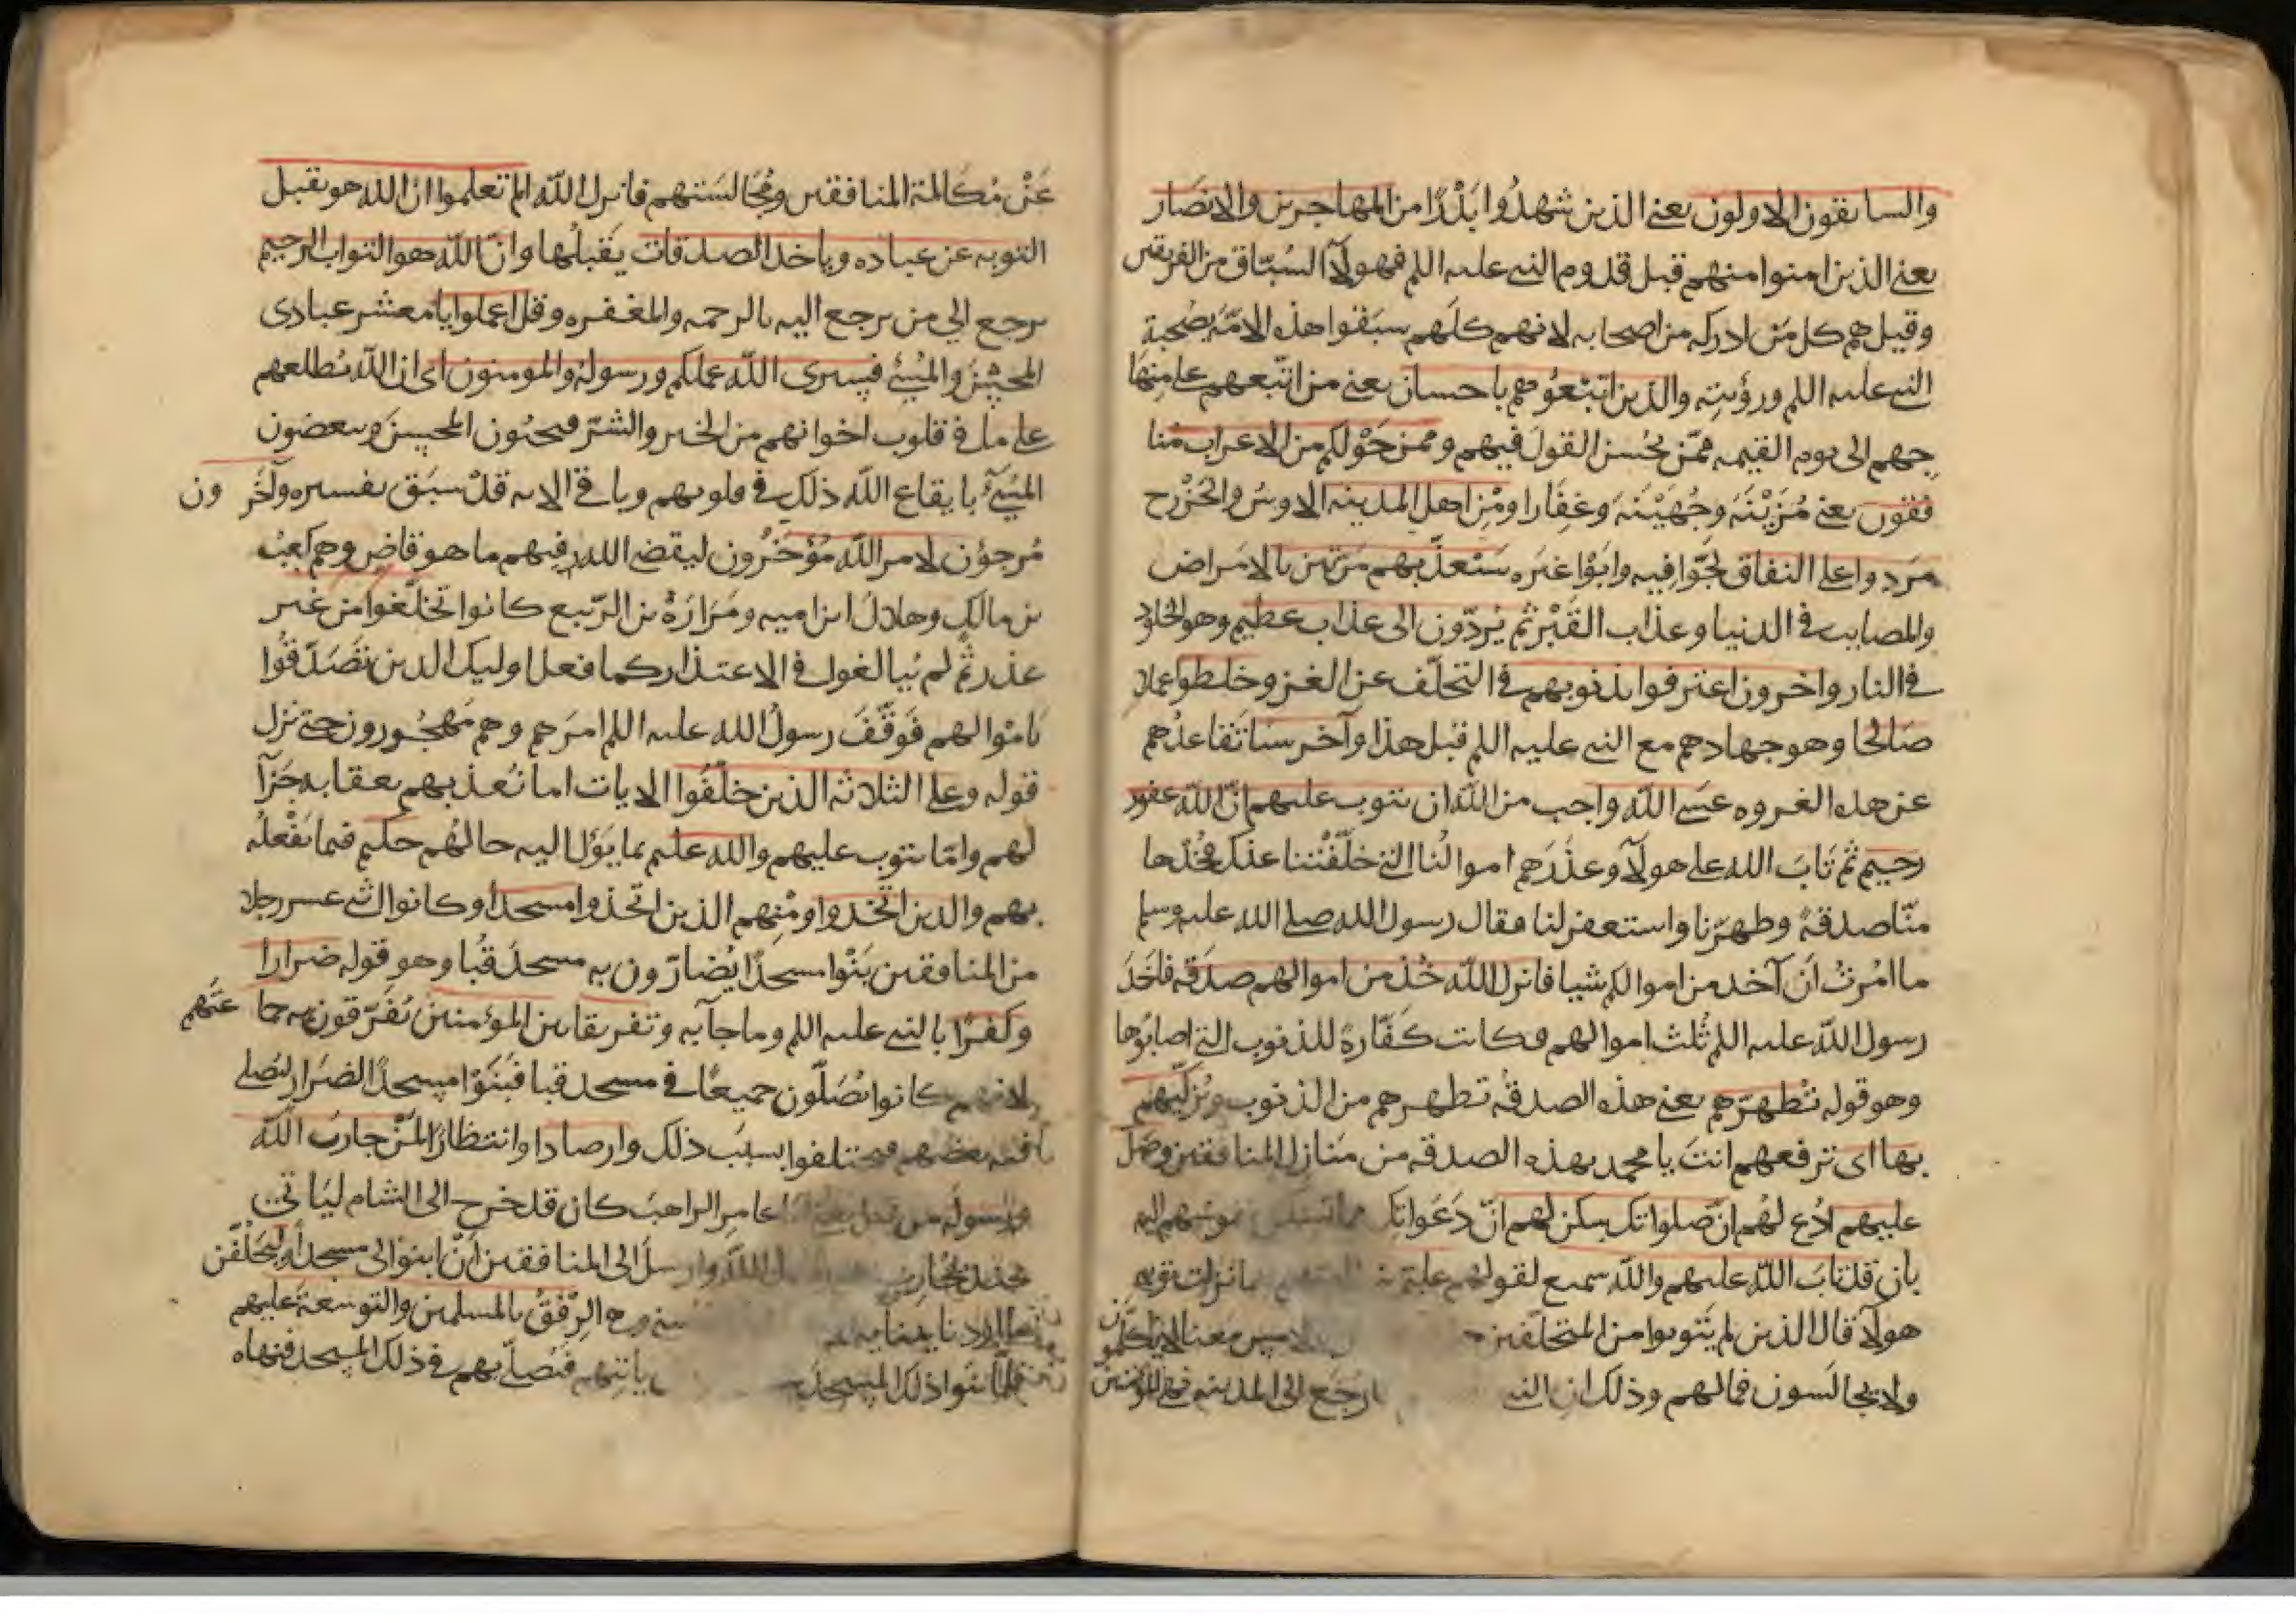 والسابقون الاولون يعني الذين شهدوا بَدْرًا من المهاجرين والانصَار
يعني الذين امنوا منهم قبل قدوم النبي عليه اللم فهولآ السُبّاق من الفريقين
وقيل هم كل مَن ادركه من اصحابه لانهم كلهم سبَقوا هذه الامّة بصُحبة
النبي عليه اللم ورؤيته والذين اتبعُوهم باحسان يعني من اتّبعهم على مِنهَا
جهم الى يوم القيمه ممّن يُحسن القولَ فيهم وممن حَوْلكم من الاعراب مُنا
فقون يعني مُزَيْنَة وجُهَيْنَة وغفَارا ومِن اهل المدينه الاوسُ والخَزْرج
مرَدوا على النفاق لجّوا فيه وابَوْا غيرَه سَنُعذّبهم مرّتين بالامراض
والمصايب في الدنيا وعذاب القَبْر ثم يُردّون الى عذاب عظيم وهو الخلود
في النار واخرون اعترفوا بذنوبهم في التخلّف عن الغزو خلطوا عملا
صَالحا وهو جهادهم مع النبي عليه اللم قبل هذا وآخر سيّا تقاعدُهم
عن هذه الغزوه عسَى الله واجب من الله ان يتوب عليهم انّ الله غفور
رحيم ثم تَابَ الله على هولآ وعذَرَهم اموالُنا التي خلّفَتْنا عنك فخُذها
منّا صدقةً وطهرنا واستغفر لنا فقال رسول الله صلى الله عليه وسلم
ما امُرتُ اَن آخد من اموالكم شيا فانزل الله خُذ من اموالهم صدقه فاخذ
رسول الله عليه اللم ثُلث اموالهم وكانت كَفّارةً للذنوب التي اصابُوها
وهو قوله تُطهرّهم يعني هذه الصدقة تطهرهم من الذنوب وتزكّيهم
بها اى ترفعهم انتَ يا محمد بهذه الصدقه من مَنازل المنافقين وصَل
عليهم ادُع لهُم انّ صلواتك سكن لهم انّ دَعَواتك
بان قد تابَ الله عليهم والله سميع لقولهم عليم
هولآ قال الذين لم يَتوبوا من المتخلّفين
ولا يجالَسون فمالهم وذلك ان النبي رجَع الى المدينه
عَنْ مُكَالمة المنافقين ومُجَالسَتهم فانزل الله الم تعلموا ان الله هو يقبل
التوبه عن عباده وياخذ الصدقات يَقبلُها وانّ الله هو التواب الرحيم
يرجع الي من يرجع اليه بالرحمه والمغفره وقل اعملوا يا معشر عبادى
المحسِن والمُسِئ فسيرى الله عملكم ورسولهُ والمومنون اى ان الله يُطلعهم
على ما في قلوب اخوانهم من الخير والشرّ فيحبّون المحسِنَ ويبغضون
المسِئَ بايقاع الله ذلك في قلوبهم وباقي الايه قدْ سبَق تفسيره وآخَرون
مُرجؤن لامر الله مُؤخرُون ليقضي الله فيهم ما هو قاضٍ وهم كعبُ
بن مالك وهلالُ ابن اميه ومَرَارَةُ بن الرّبيع كانوا تخلّفوا من غير
عذر ثم لم يُبالغوا في الاعتذار كما فعل اوليك الذين تَصَدّقُوا
بامْوالهم فَوقّفَ رسولُ الله عليه اللم امرَهم وهم مَهجُورون حتى نزل
قوله وعلى الثلاثه الذين خلّفُوا الايات اما يُعذبهم بعقابه جَزآ
لهم وامّا يتوب عليهم والله عليم بما يَؤل اليه حالهُم حكيم فيما يَفْعلُه
بهم والدين اتّخذوا ومِنهم الذين اتخذوا مسجدا وكانوا اثني عشر رجلا
من المنافقين بَنْوا مسجدًا يُضارّون به مسجدَ قُبا وهو قوله ضرارا
وكفرًا بالنبي عليه اللم وما جآ به وتفريقا بين المؤمنين يُفَرّقون به جما عتَهم
لانهم كانوا يُصَلّون جميعًا في مسجد قبا فبَنَوْا مسجدَ الضرَار ليُصلي
فيه بعضهم فيختلفوا بسبَب ذلك وارصادا وانتظارًا لمنْ حاربَ الله
ورسوله من قبل يعني ابا عامرِ الراهبَ كان قد خرج الى الشام ليَاتيَ
بجند يُحارب وارسلَ الى المنافقين اَنّ ابنوا لى مسجدا وليَحْلفُن
ان اردنا ببنايه الرِفقُ بالمسلمين والتوسعةَ عليهم
فلمّا بنوا ذلك المسجدَ ياتيَهم فيُصلّى بهم في ذلك المسجد فنهاه